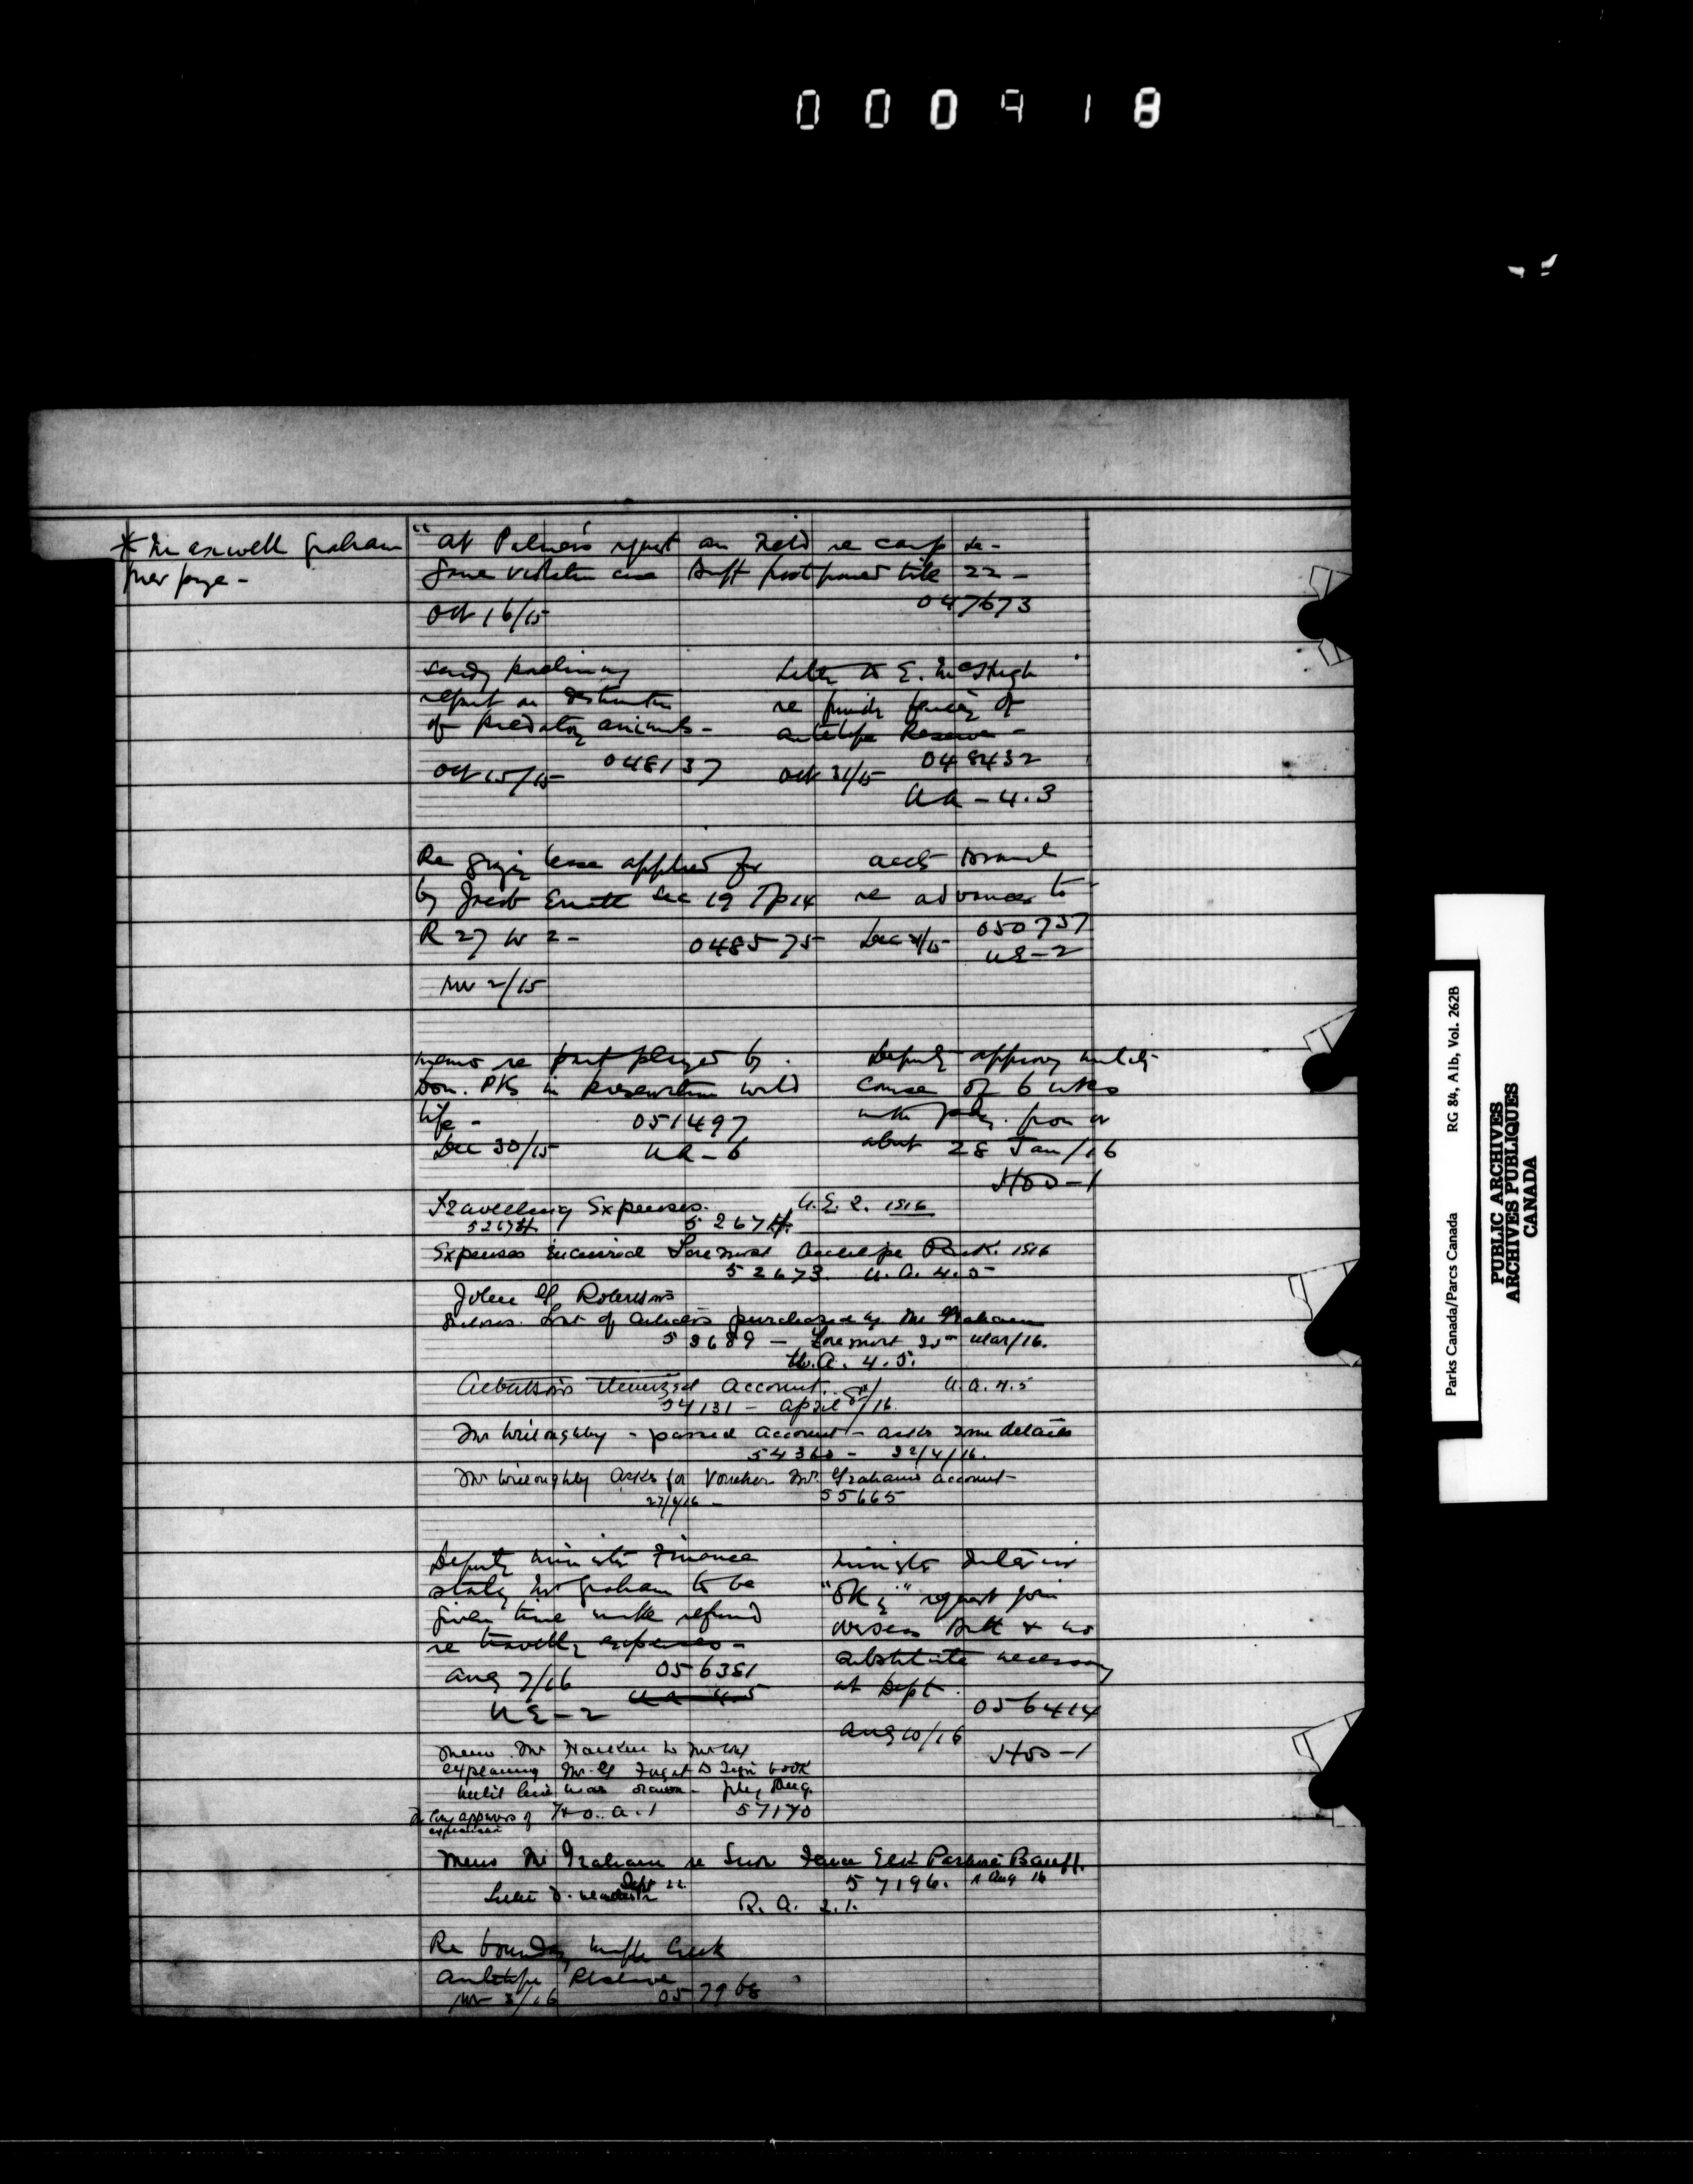 000918
* Maxwell Graham
prev page -
"At Palmer's request on Field re camp
Game violation case Banff postponed till 22 -
Oct 16/15 047673
Sends preliminary
report on destruction
of Predatory animals -
Oct 15/15 048137
Letter to E. McHugh
re fencing of
antelope Reserve -
Oct 31/15 048432
UA - 4.3
Re grazing lease applied for
by Jacob Sec 19 Tp 14
R 27 W 2 - 048575
Nov 2/15
accts Branch
re advances to
Dec /15 050757
UE - 2
memo re part played by
Dom. Pks in preservation wild
life - 051497
Dec 30/15 UA - 6
Deputy approves
course of 6 wks
with pay. from or
about 28 Jan/16
HOO - 1
Travelling Expenses. U.E. 2. 1916
52674 52674
Expenses incurred Foremost Antelope Park. 1916
52673. U.A. 4.5
John G Robertson
Encloses List of articles purchased by Mr Graham
53689 - Foremost 25th Mar/16.
U.A. 4.5.
itemized account. U.A. 4.5
54131 - April 8th/16.
Mr Willoughby - passed account - asks some details
54360 - 22/4/16.
Mr Willoughby asks for Voucher Mr. Grahams account -
27/6/16 - 55665
Deputy minister Finance
stating Mr Graham to be
given time make refund
re travelling expenses -
Aug 7/16 056381
UA 4.5
UE - 2
Minister Interior
"OKs" request join
overseas Batt & no
substitute necessary
at Dept.
056414
Aug 10/16
HOO - 1
Memo. Mr Harkin to Mr Cory
explaining Mr. G forgot to sign book
until line was drawn - July, Aug.
Mr Cory approves of H.O.. A. 1 57170
explanation
Memo Mr Graham re Snow Fence Elk Park Banff.
57196. Aug 16
Sept 22
R. A. 2.1.
Re boundary Maple Creek
Antelope Reserve
Nov 3/16 057968
Parks Canada/Parcs Canada RG 84, A1b, Vol. 262B
PUBLIC ARCHIVES
ARCHIVES PUBLIQUES
CANADA